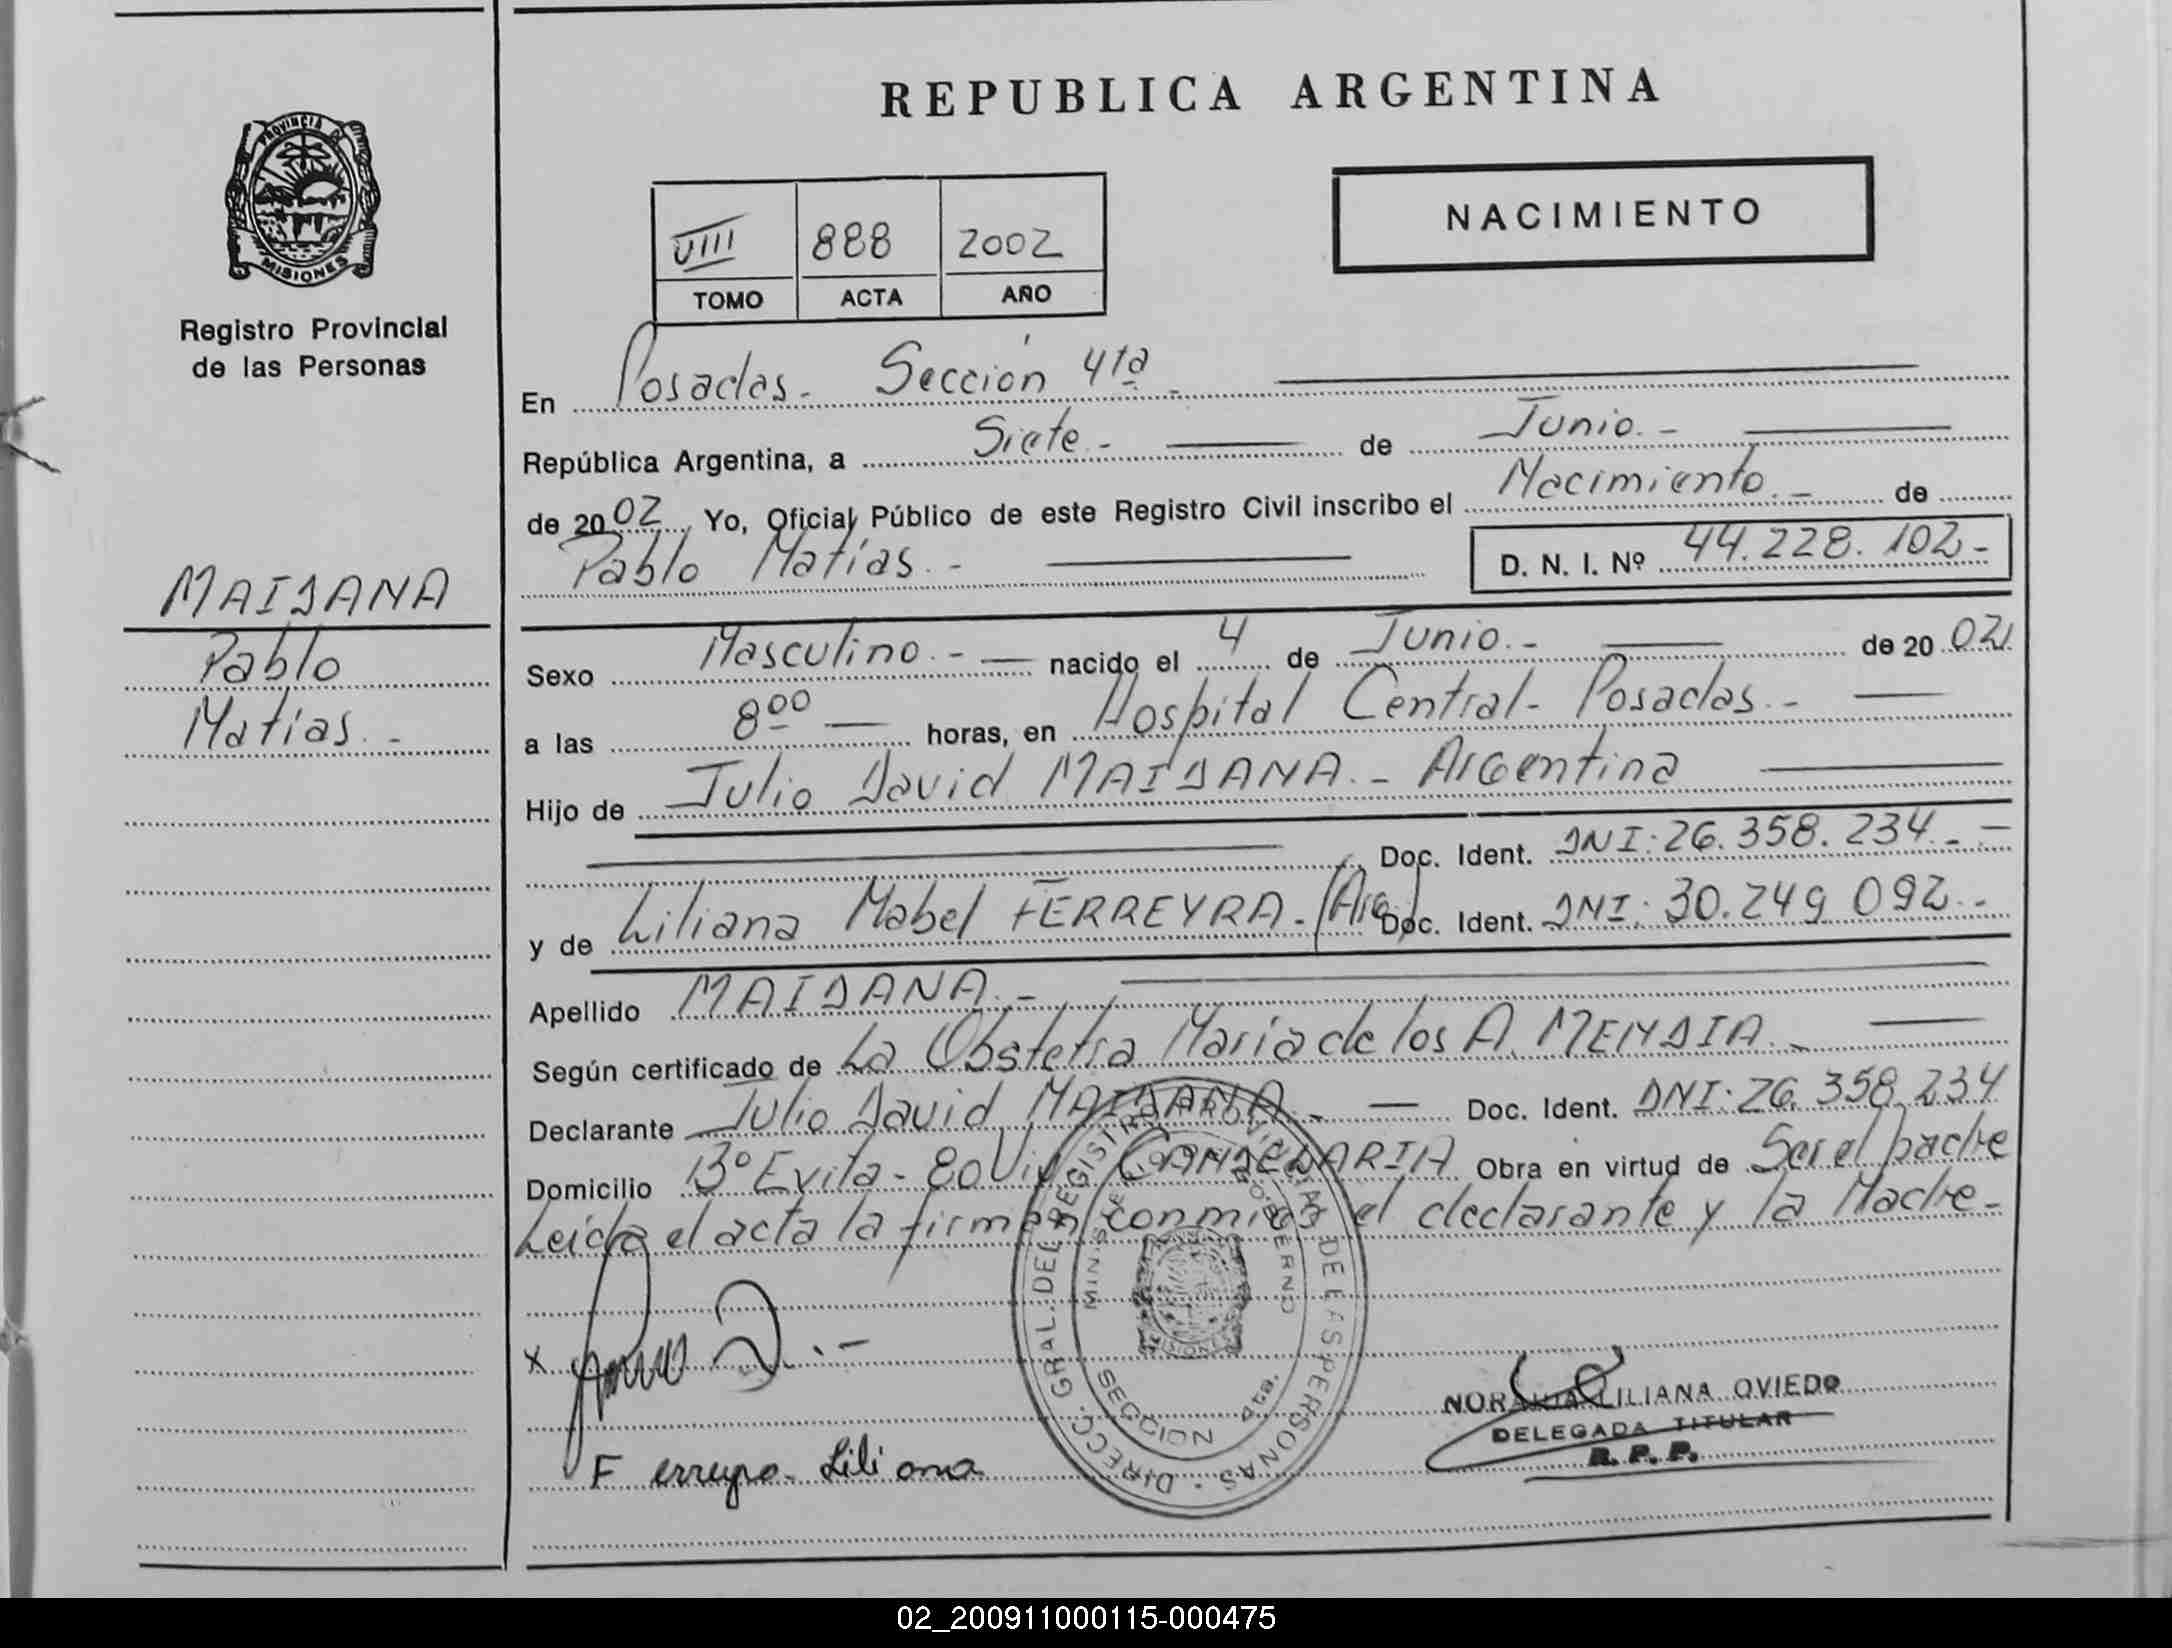 REPUBLICA ARGENTINA
PROVINCIA DE
MISIONES
Registro Provincial
de las Personas
NACIMIENTO
VIII 888 2002
TOMO ACTA AÑO
En Posadas.- Sección 4ta.-
República Argentina, a Siete.- de Junio.-
de 2002 Yo, Oficial Público de este Registro Civil inscribo el Nacimiento.- de
Pablo Matías.- D. N. I. Nº 44.228.102-
MAIDANA
Pablo
Matías.-
Sexo Masculino.- nacido el 4 de Junio.- de 2002
a las 8⁰⁰ horas, en Hospital Central- Posadas.-
Hijo de Julio David MAIDANA.- Argentina
Doc. Ident. DNI: 26.358.234.-
y de Liliana Mabel FERREYRA.- (Arg.) Doc. Ident. DNI: 30.249.092.-
Apellido MAIDANA.-
Según certificado de La Obstetra María de los A. MENDIA.-
Declarante Julio David MAIDANA.- Doc. Ident. DNI: 26.358.234
Domicilio Bº Evita- 80 Viv. CANDELARIA Obra en virtud de Ser el padre
Leída el acta la firman conmigo el declarante y la Madre.-
DIRECC. GRAL. DEL REGISTRO PROVINCIAL DE LAS PERSONAS
MINISTERIO DE GOBIERNO
SECCION 4ta.
x
Ferreyra Liliana
LILIANA OVIEDO
DELEGADA TITULAR
R. P. P.
02_200911000115-000475